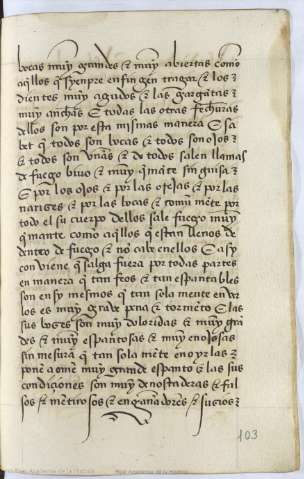 bocas muy grandes & muy abiertas como
aq̃llos q̃ syenpre enfingen tragar & los
dientes muy agudos & las gargãtas
muy anchas E todas las otras fechuras
dellos son por esta misma manera E sa
bet q̃ todos son bocas & todos son ojos &
& todos son vnas & de todos salen llamas
de fuego biuo & muy q̃mãte sin guisa &
E por los ojos & por las orejas & por las
narizes & por las bocas & comũ mẽte por
todo el su cuerpo dellos sale fuego muy
q̃mante como aq̃llos q̃ estan llenos de
dentro de fuego & no cabe enellos E asy
conviene q̃ salga fuera por todas partes
en manera q̃ tan feos & tan espantables
son en sy mesmos q̃ tan sola mente en ver
los es muy grãde pena & tormẽto E las
sus bozes son muy doloridas & muy grã
des & muy espantosas & muy enojosas
sin mesura q̃ tan sola mẽte en oyrlas
pone a ome muy grande espanto & las sus
condiçiones son muy denostaderas & fal
sos & mẽtirosos & engañadores & suzios
103